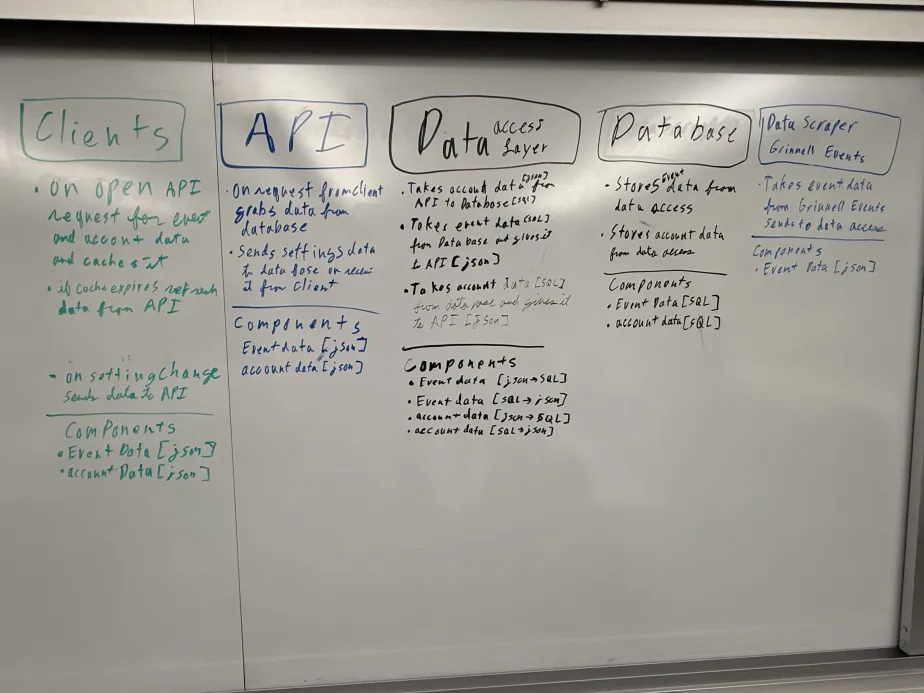 Clients
• on open API
request for event
and account data
and caches it
• if cache expires refresh
data from API
• on setting change
sends data to API
Components
• Event Data [json]
• account Data [json]
API
• On request from client
grabs data from
database
• Sends settings data
to data base on
it from client
Components
Event data [json]
account data [json]
Data access
layer
• Takes account data [json] from
API to Database [sql]
• Takes event data [SQL]
from Database and gives it
to API [json]
• Takes account data [SQL]
from data base and gives it
to API [json]
Components
• Event data [json→SQL]
• Event data [SQL→json]
• account data [json→SQL]
• account data [SQL→json]
Database
• Stores event data from
data access
• Stores account data
from data access
Components
• Event Data [SQL]
• account data [SQL]
Data Scraper
Grinnell Events
• Takes event data
from Grinnell Events
sends to data access
Components
• Event Data [json]